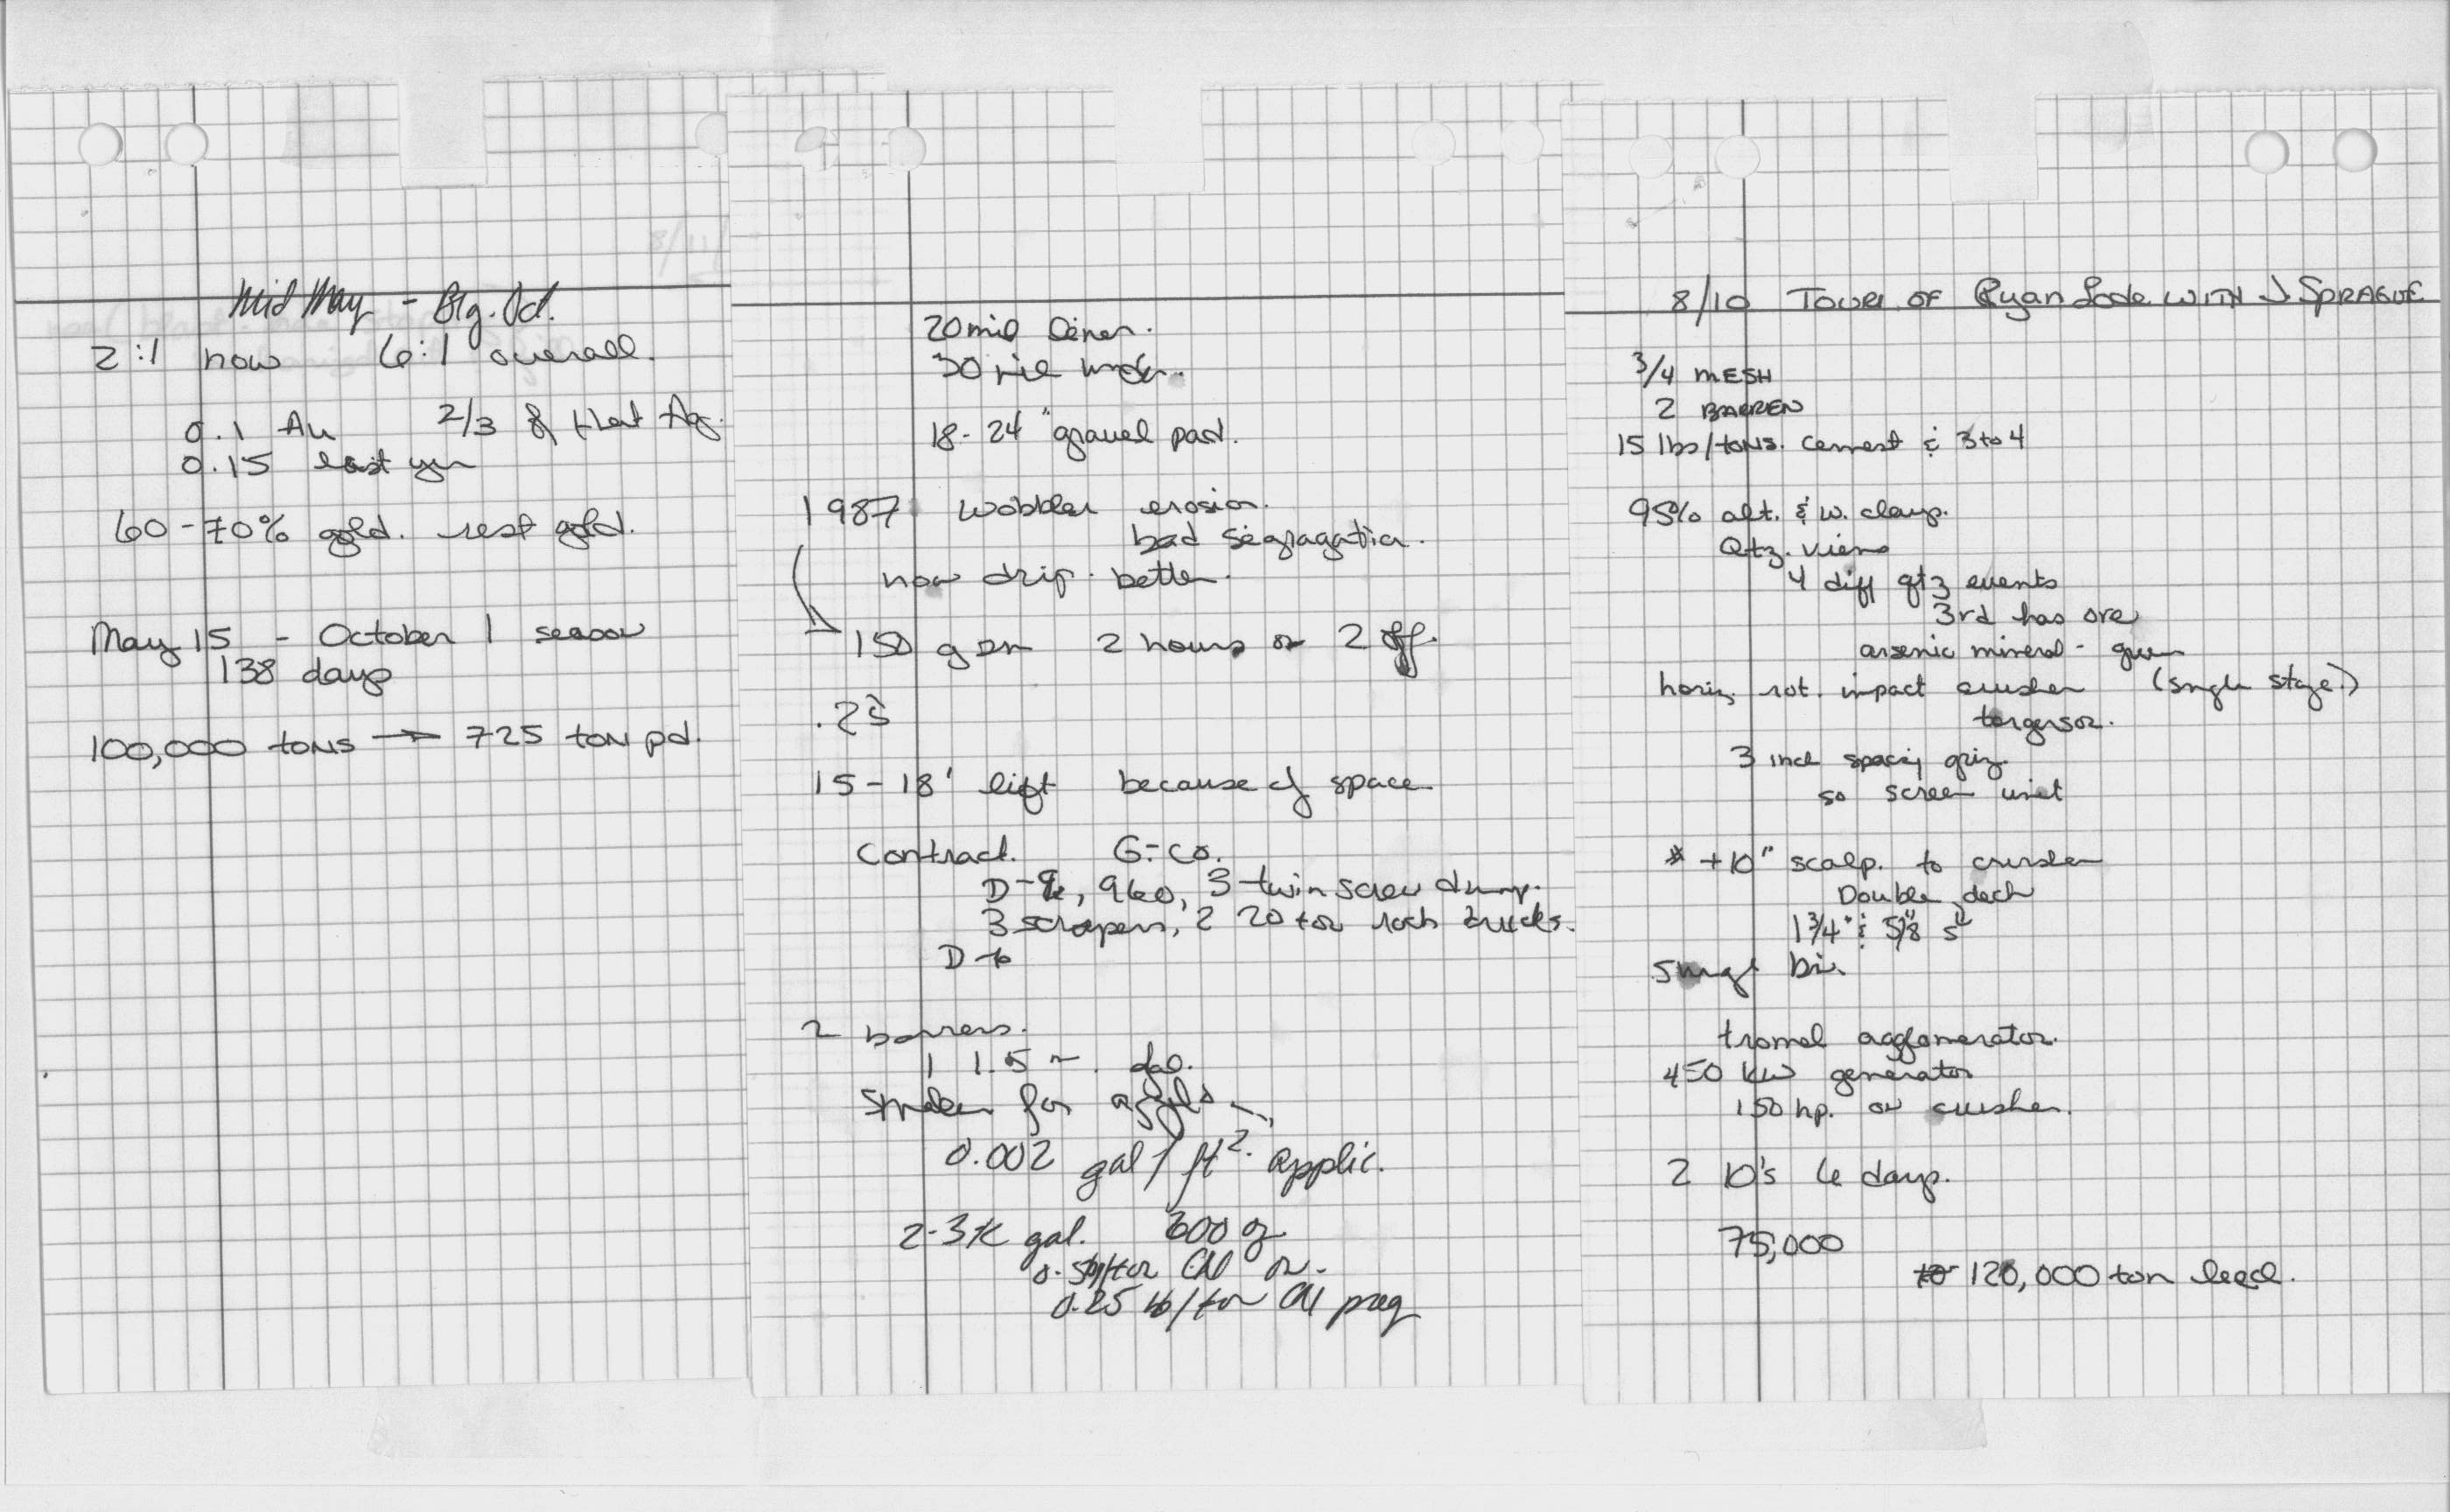 Mid May - Beg. Oct.
2:1 now 6:1 overall.
0.1 Au 2/3 of that Ag.
0.15 last yr
60-70% gold. rest gold.
May 15 - October 1 season
138 days
100,000 tons → 725 ton pd.
20 mil liner.
30 mil under.
18-24" gravel pad.
1987 wobbler erosion.
bad segragation.
now drip. better.
150 gpm 2 hours on 2 off.
.25
15-18' lift because of space
Contract. G-co.
D-9, 960, 3 twin screw dump.
3 scrapers, 2 20 ton rock trucks.
D-6
2 barrens.
1 1.5 gal.
for
0.002 gal/ft². applic.
2-3K gal. 600
CN
0.25 lb/ton CN preg
8/10 TOUR OF Ryan Lode WITH J SPRAGUE
3/4 MESH
2 BARREN
15 lbs/tons. cement & 3 to 4
95% alt. & w. clays.
Qtz. viens
4 diff qtz events
3rd has ore
arsenic mineral - green
horiz. rot. impact crusher (single stage.)
torgerson.
3 inch spacing griz.
so screen unit
* +10" scalp. to crusher
Double deck
1 3/4" & 5/8"
surge bin
tromel agglomerator.
450 kw generator
150 hp. on crusher.
2 10's 6 days.
75,000
to 120,000 ton leach.